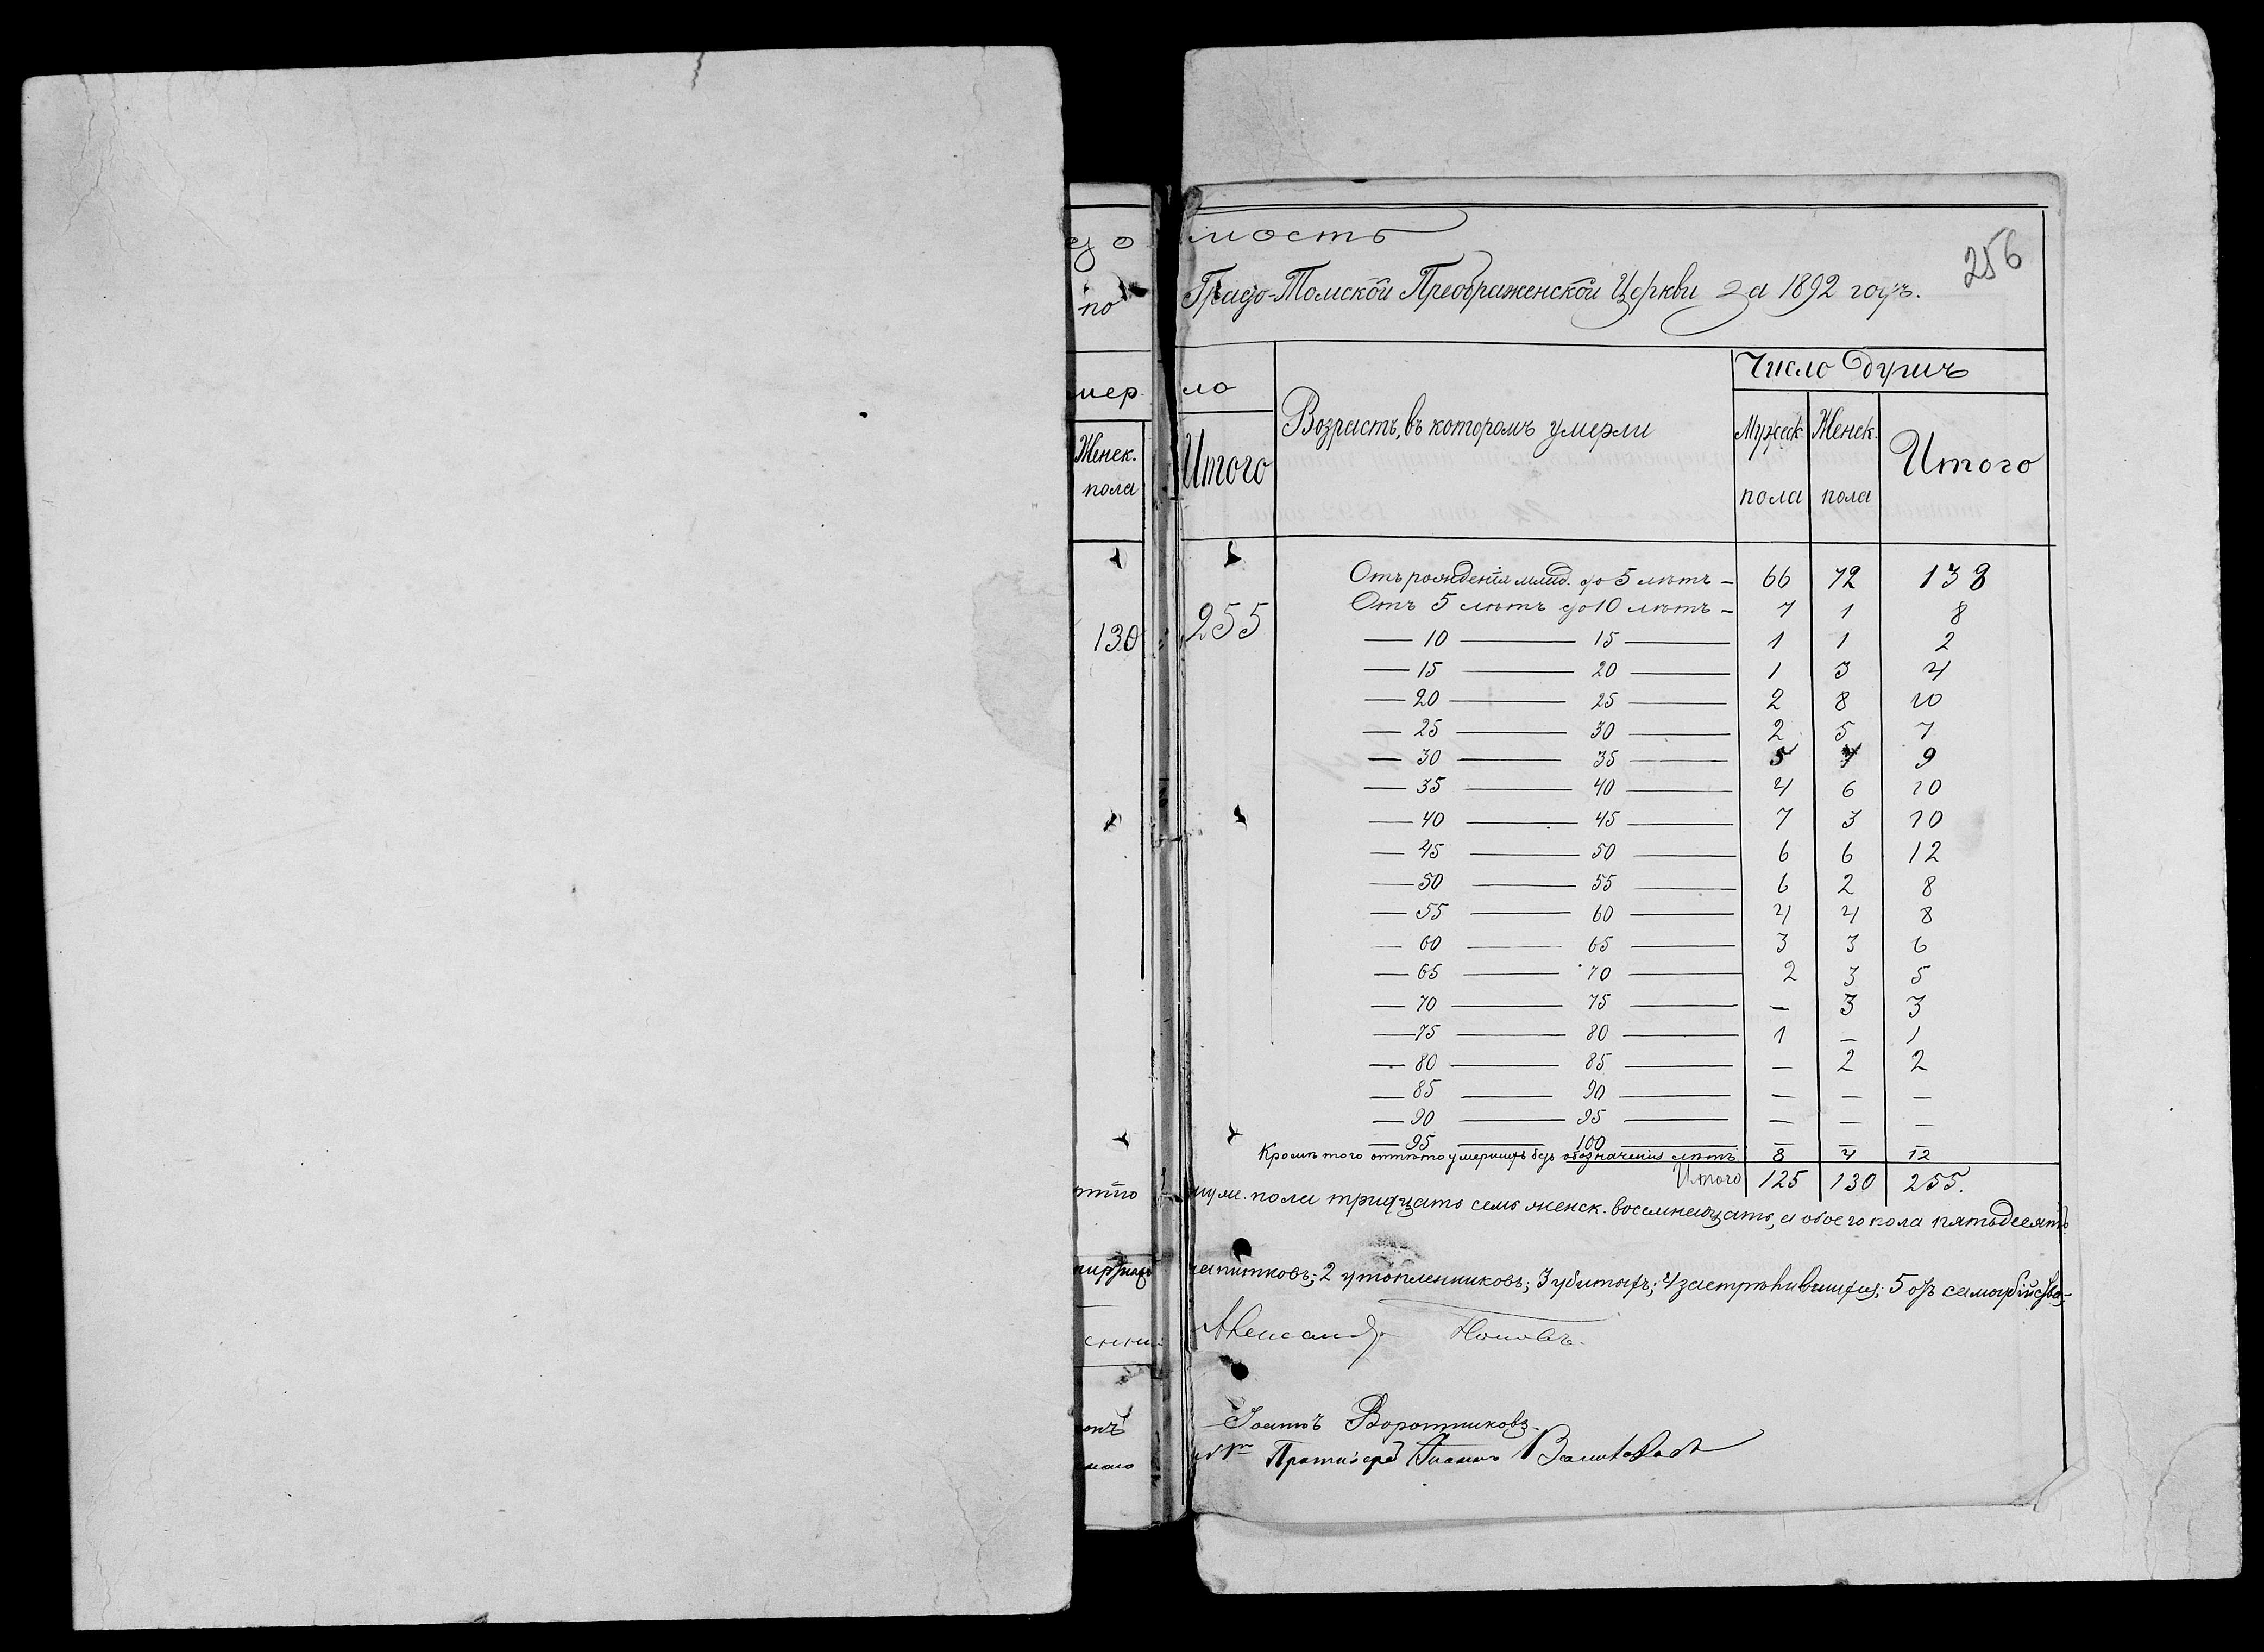 ус о мость
256
по Градо-Томской Преображенской Церкви за 1892 годъ.
мер ло
Число душъ
Возрастъ, въ которомъ умерли
Женск. пола Итого
Мужск. пола Женск. пола Итого
Отъ рожденія млад. до 5 лѣтъ - 66 72 138
Отъ 5 лѣтъ до 10 лѣтъ - 7 1 8
130 255
— 10 — 15 — 1 1 2
— 15 — 20 — 1 3 4
— 20 — 25 — 2 8 10
— 25 — 30 — 2 5 7
— 30 — 35 — 5 4 9
— 35 — 40 — 4 6 10
— 40 — 45 — 7 3 10
— 45 — 50 — 6 6 12
— 50 — 55 — 6 2 8
— 55 — 60 — 4 4 8
— 60 — 65 — 3 3 6
— 65 — 70 — 2 3 5
— 70 — 75 — — 3 3
— 75 — 80 — 1 — 1
— 80 — 85 — — 2 2
— 85 — 90 — — — —
— 90 — 95 — — — —
— 95 — 100 — — — —
Кромѣ того отпѣто умершихъ безъ обозначенія лѣтъ 8 4 12
Итого 125 130 255.
муж. пола тридцать семь женск. восемнадцать, а обоего пола пятьдесятъ
напитковъ; 2 утопленниковъ; 3 убитыхъ; 4 застрѣлившихся; 5 отъ самоубійства;
Александръ Поповъ.
Іоаннъ Воротниковъ
Протоіерей